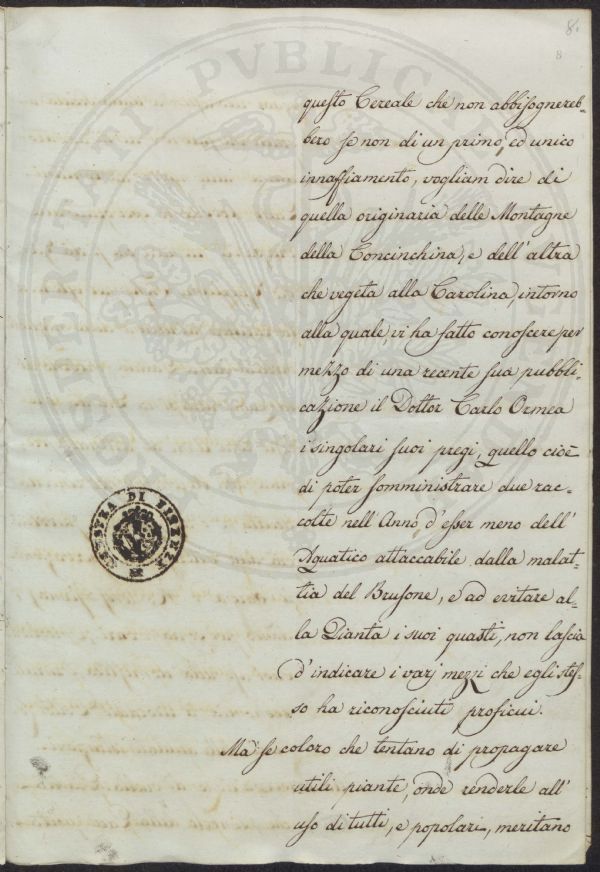 8.
8
questo Cereale che non abbisognereb-
bero se non di un primo, ed unico
innaffiamento, vogliam dire di
quella originaria delle Montagne
della Concinchina, e dell'altra
che vegeta alla Carolina, intorno
alla quale, vi ha fatto conoscere per
mezzo di una recente sua pubbli-
cazione il Dottor Carlo Ormea
i singolari suoi pregi, quello cioè
di poter somministrare due rac-
colte nell'Anno d'esser meno dell'
Aquatico attaccabile dalla malat-
tia del Brusone, e ad evitare al-
la Pianta i suoi guasti, non lascia
d'indicare i varj mezzi che egli stes-
so ha riconosciuti proficui.
Ma se coloro che tentano di propagare
utili piante, onde renderle all'
uso di tutti, e popolari, meritano